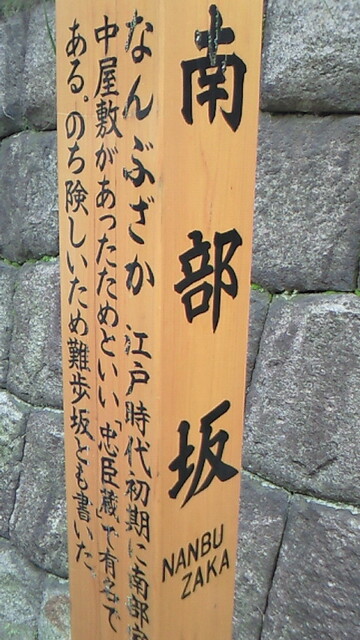 南部坂
NANBU
ZAKA
なんぶざか 江戸時代初期に南部家
中屋敷があったためといい「忠臣蔵」で有名で
ある。のち険しいため難歩坂とも書いた。